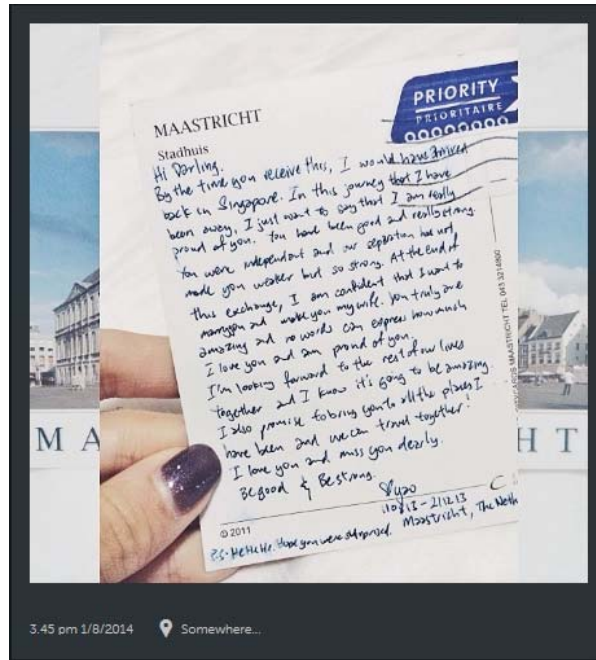 PRIORITY
PRIORITAIRE
MAASTRICHT
Stadhuis
Hi Darling.
By the time you receive this, I would have arrived
back in Singapore. In this journey that I have
been away, I just want to say that I am really
proud of you. You have been good and really strong.
You were independent and our separation has not
made you weaker but so strong. At the end of
this exchange, I am confident that I want to
marry you and make you my wife. You truly are
amazing and no words can express how much
I love you and am proud of you.
I'm looking forward to the rest of our lives
together and I know it's going to be amazing.
I also promise to bring you to all the places I
have been and we can travel together!
I love you and miss you dearly.
Be good & Be strong.
13 - 21.12.13
Maastricht, The Neth
© 2011
P.S- HeHeHe. Hope you were surprised.
MAASTRICHT TEL 043 3214800
M A
H T
3.45 pm 1/8/2014
Somewhere...